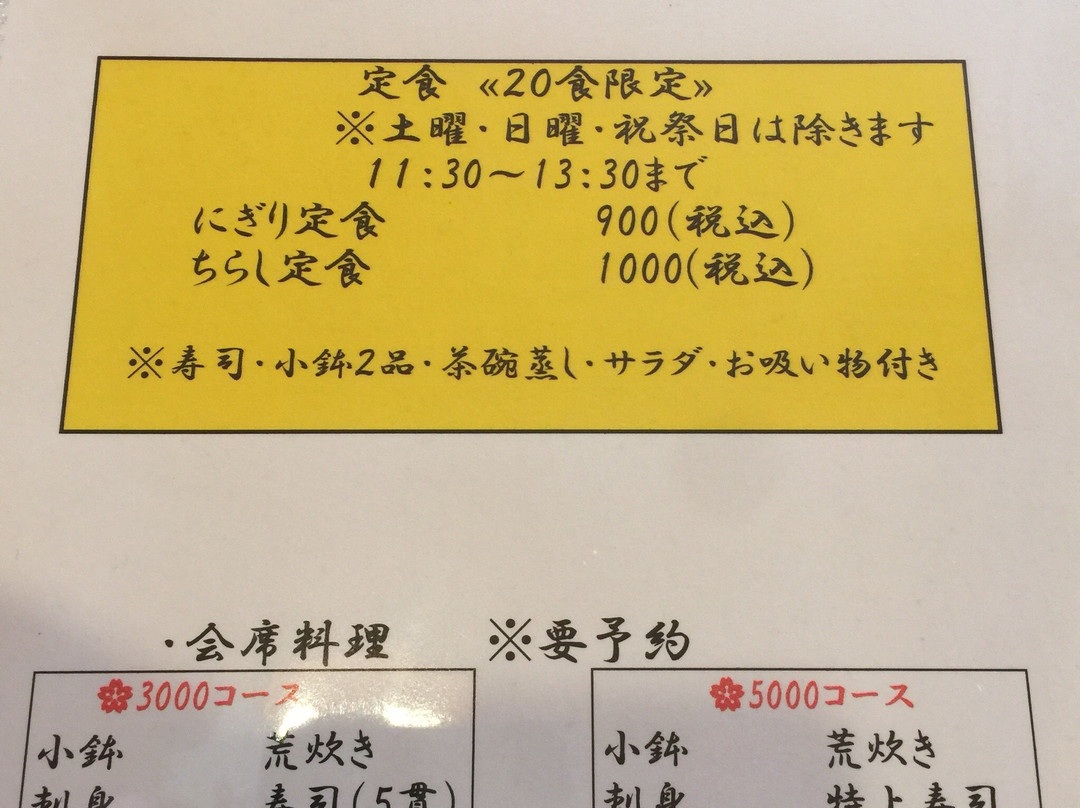 定食 ≪20食限定≫
※土曜・日曜・祝祭日は除きます
11:30～13:30まで
にぎり定食 900(税込)
ちらし定食 1000(税込)
※寿司・小鉢2品・茶碗蒸し・サラダ・お吸い物付き
・会席料理 ※要予約
3000コース
小鉢 荒炊き
刺身 寿司(5貫)
5000コース
小鉢 荒炊き
刺身 特上寿司